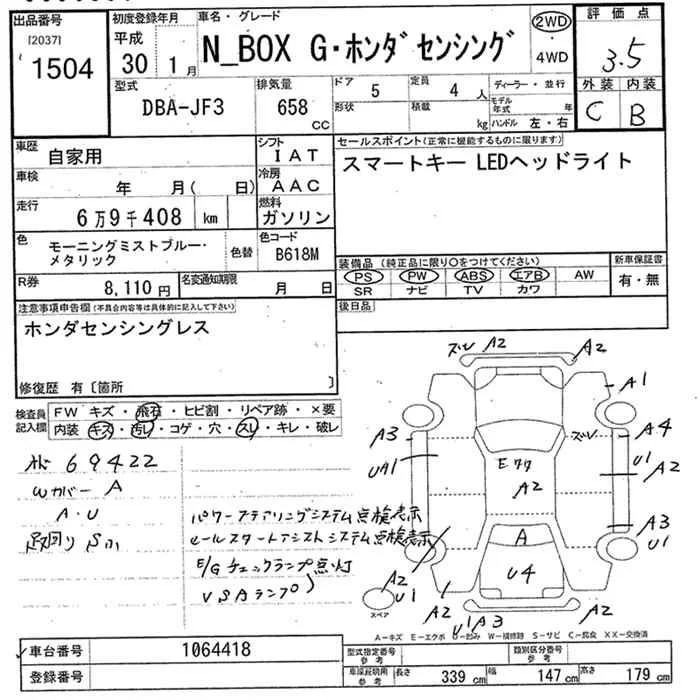 出品番号
[2037]
1504
初度登録年月
平成
30 1月
車名・グレード
N_BOX G・ホンダセンシング
2WD
4WD
評価点
3.5
外装 内装
C B
型式
DBA-JF3
排気量
658 cc
ドア 5
形状
定員 4 人
積載 kg
ディーラー・並行
モデル年式 年
ハンドル 左・右
車歴 自家用
シフト IAT
車検 年 月( 日)
冷房 AAC
走行 6万9千408 km
燃料 ガソリン
色 モーニングミストブルー・メタリック
色替
色コード B618M
R券 8,110円
名変通知期限 月 日
セールスポイント(正常に機能するものに限ります)
スマートキー LEDヘッドライト
装備品 (純正品に限り○をつけてください)
PS PW ABS エアB AW
SR ナビ TV カワ
新車保証書
有・無
後日品
注意事項申告欄(不具合内容等は具体的に記入して下さい)
ホンダセンシングレス
修復歴 有〔箇所 〕
検査員記入欄
FW キズ・飛石・ヒビ割・リペア跡・×要
内装 キズ・汚レ・コゲ・穴・スレ・キレ・破レ
69422
Wカバー A
A・U
パワーステアリングシステム点検表示
ヒールスタートアシストシステム点検表示
E/Gチェックランプ点灯
VSAランプ〃
ズレ A2
A2
A1
A3
UA1
ズレ
A4
U1
A2
A3
U1
Eクク
A2
A
U4
A2
U1
A2
U1A3
スペア
A-キズ E-エクボ U-凹み W-補修跡 S-サビ C-腐食 XX-交換済
車台番号 1064418
登録番号
型式指定番号
参考
類別区分番号
参考
車検証明用
参考
長さ 339 cm
幅 147 cm
高さ 179 cm